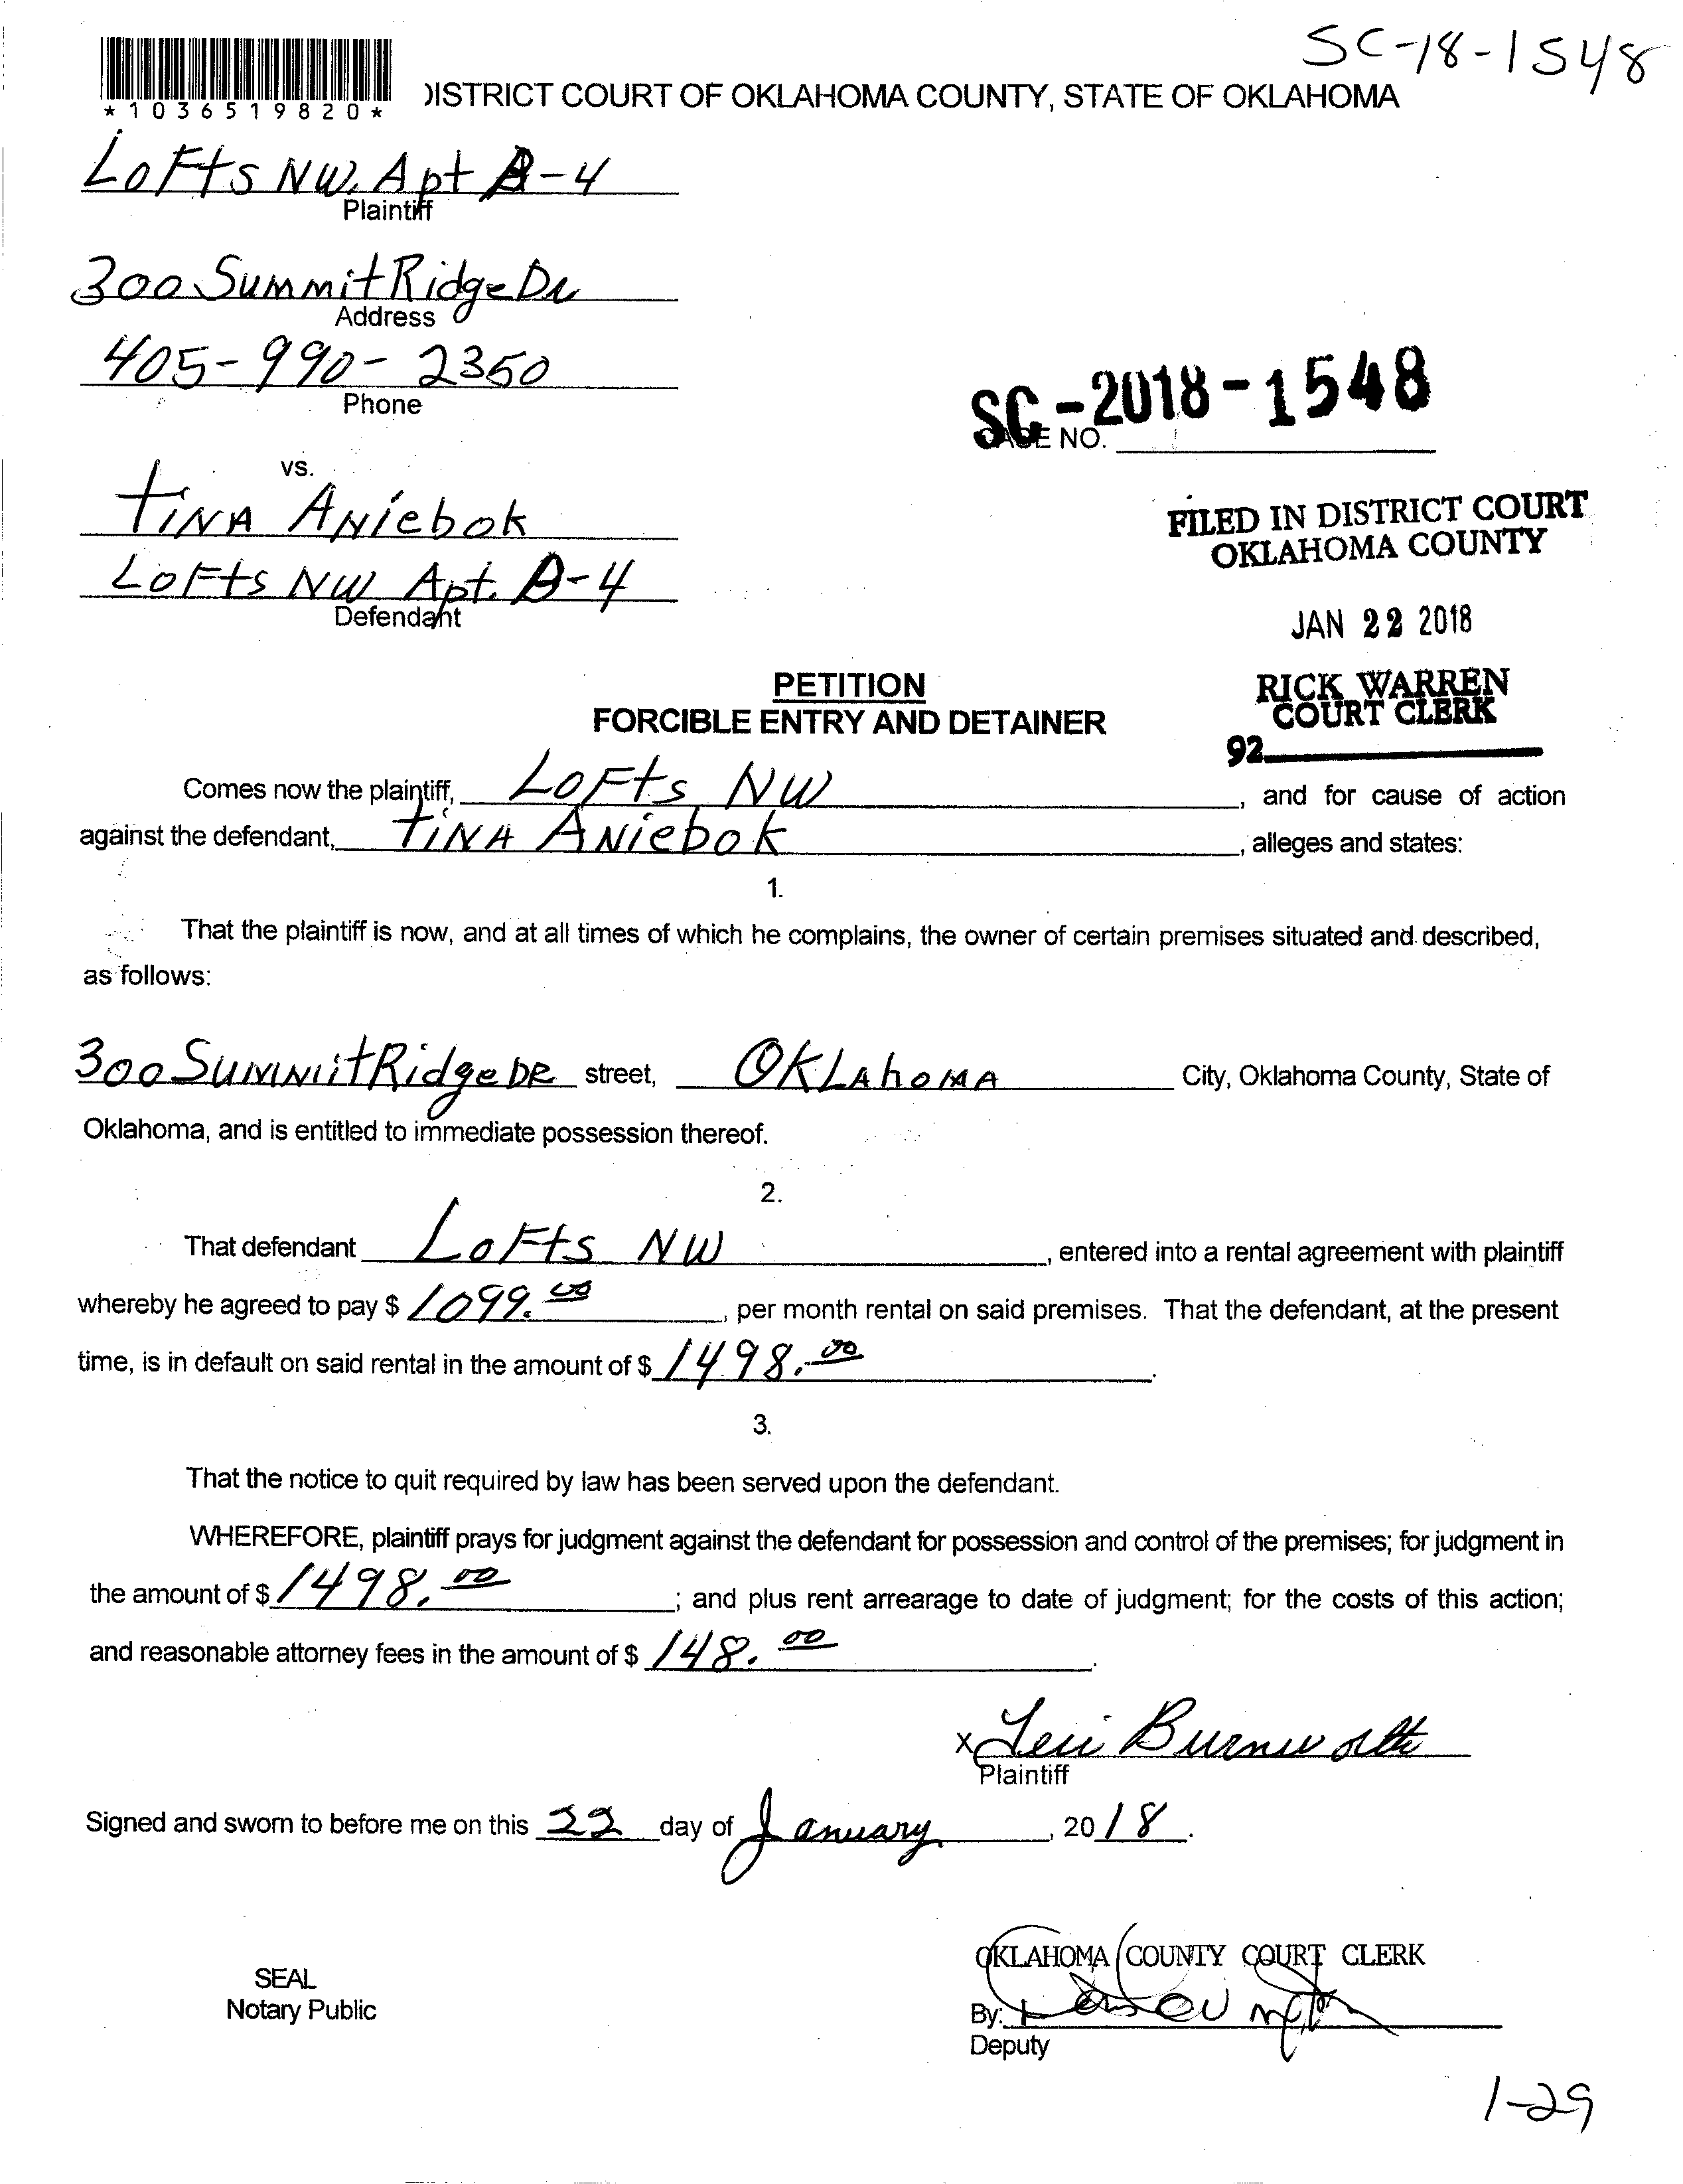 SC-18-1548
*1036519820*
DISTRICT COURT OF OKLAHOMA COUNTY, STATE OF OKLAHOMA
LoFts NW. Apt A-4
Plaintiff
300 Summit Ridge Dr
Address
405-990-2350
Phone
SC-2018-1548
CASE NO.
vs.
TiNA ANiebok
LoFts NW Apt. A-4
Defendant
FILED IN DISTRICT COURT
OKLAHOMA COUNTY
JAN 22 2018
RICK WARREN
COURT CLERK
92
PETITION
FORCIBLE ENTRY AND DETAINER
Comes now the plaintiff, LoFts NW, and for cause of action
against the defendant, TiNA ANiebok, alleges and states:
1.
That the plaintiff is now, and at all times of which he complains, the owner of certain premises situated and described,
as follows:
300 Summit Ridge DR street, OKLAhoMA City, Oklahoma County, State of
Oklahoma, and is entitled to immediate possession thereof.
2.
That defendant LoFts NW, entered into a rental agreement with plaintiff
whereby he agreed to pay $ 1099.00, per month rental on said premises. That the defendant, at the present
time, is in default on said rental in the amount of $ 1498.00.
3.
That the notice to quit required by law has been served upon the defendant.
WHEREFORE, plaintiff prays for judgment against the defendant for possession and control of the premises; for judgment in
the amount of $ 1498.00; and plus rent arrearage to date of judgment; for the costs of this action;
and reasonable attorney fees in the amount of $ 148.00.
x Teri Burnworth
Plaintiff
Signed and sworn to before me on this 22 day of January, 2018.
SEAL
Notary Public
OKLAHOMA COUNTY COURT CLERK
By:
Deputy
1-29